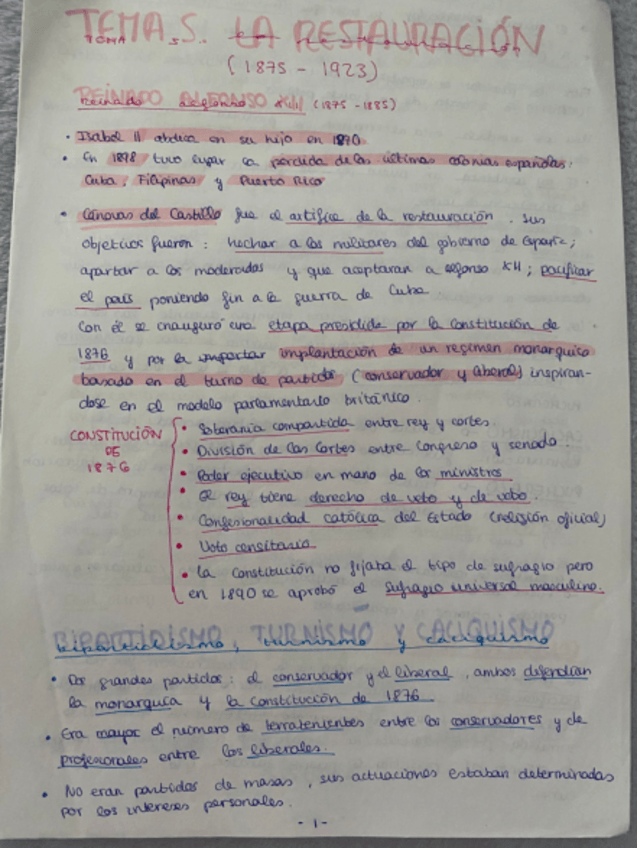 TEMA 5. LA RESTAURACIÓN
(1875 - 1923)
REINADO ALFONSO XII (1875 - 1885)
• Isabel II abdica en su hijo en 1870
• En 1898 tuvo lugar la perdida de las últimas colonias españolas:
Cuba, Filipinas y Puerto Rico
• Cánovas del Castillo fue el artífice de la restauración. Sus
objetivos fueron: hechar a los militares del gobierno de España;
apartar a los moderados y que aceptaran a Alfonso XII; pacificar
el país poniendo fin a la guerra de Cuba.
Con él se inauguró una etapa presidida por la Constitución de
1876 y por la implantación de un regimen monarquico
basado en el turno de partidos (conservador y liberal) inspiran-
dose en el modelo parlamentario británico.
CONSTITUCIÓN
DE
1876
• Soberanía compartida entre rey y cortes
• División de las Cortes entre Congreso y senado.
• Poder ejecutivo en mano de los ministros
• El rey tiene derecho de veto y de voto.
• Confesionalidad católica del Estado (religión oficial)
• Voto censitario
• La Constitución no fijaba el tipo de sufragio pero
en 1890 se aprobó el Sufragio universal masculino.
BIPARTIDISMO, TURNISMO y CACIQUISMO
• Dos grandes partidos: el conservador y el liberal, ambos defendían
la monarquía y la Constitución de 1876
• Era mayor el número de terratenientes entre los conservadores y de
profesionales entre los liberales.
• No eran partidos de masas, sus actuaciones estaban determinadas
por los intereses personales.
- 1 -